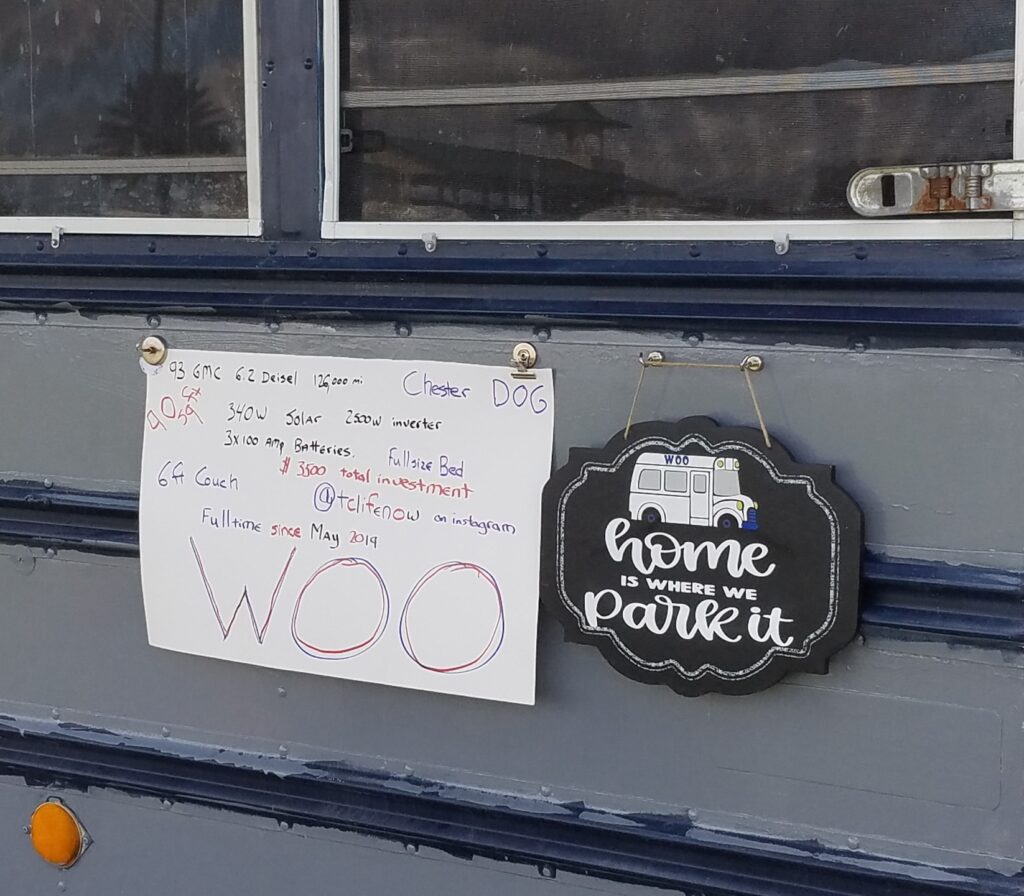 93 GMC 6.2 Deisel 126,000 mi
Chester DOG
Cat
340W Solar 2500W inverter
3x100 Amp Batteries.
Fullsize Bed
$ 3500 total investment
6ft Couch
@tclifenow on instagram
Fulltime since May 2019
WOO
WOO
home
IS WHERE WE
park it